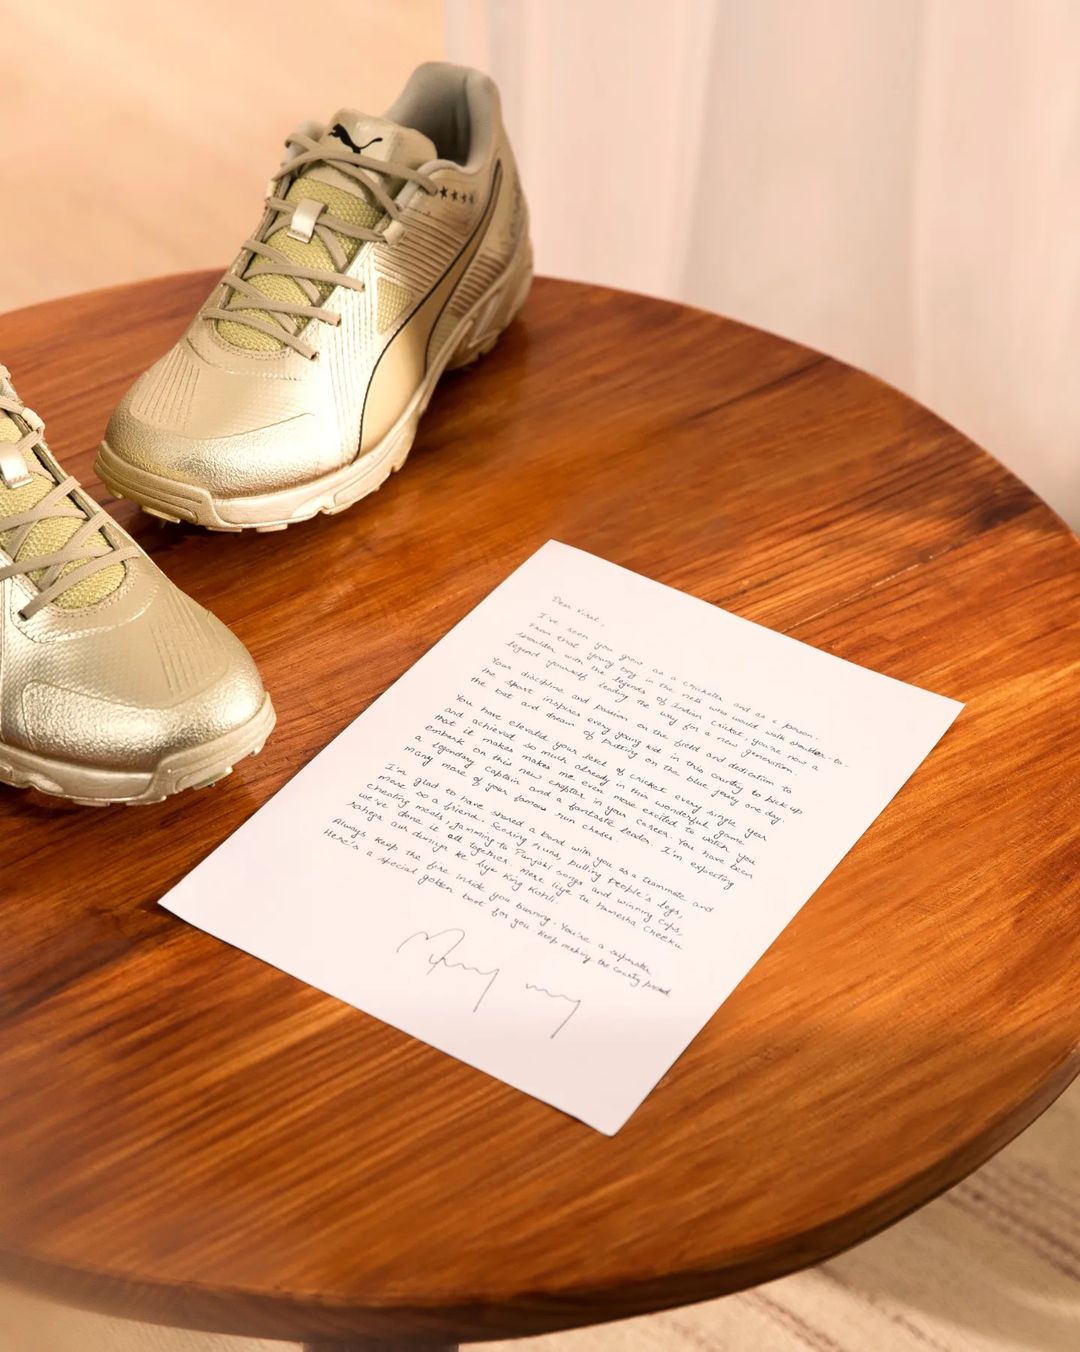 Dear Virat,
I've seen you grow as a cricketer and as a person.
From that young boy in the nets who would walk shoulder-to-
shoulder with the legends of Indian Cricket, you're now a
legend yourself leading the way for a new generation.
Your discipline and passion on the field and dedication to
the sport inspires every young kid in this country to pick up
the bat and dream of putting on the blue jersey one day.
You have elevated your level of cricket every single year
and achieved so much already in this wonderful game
that it makes makes me even more excited to watch you
embark on this new chapter in your career. You have been
a legendary captain and a fantastic leader. I'm expecting
many more of your famous run chases.
I'm glad to have shared a bond with you as a teammate and
more so a friend. Scoring runs, pulling people's legs,
cheating meals, jamming to Punjabi songs and winning cups,
we've done it all together. Mere liye tu hamesha Cheeku
rahega aur duniya ke liye King Kohli.
Always keep the fire inside you burning. You're a superstar.
Here's a special golden boot for you. Keep making the country proud.